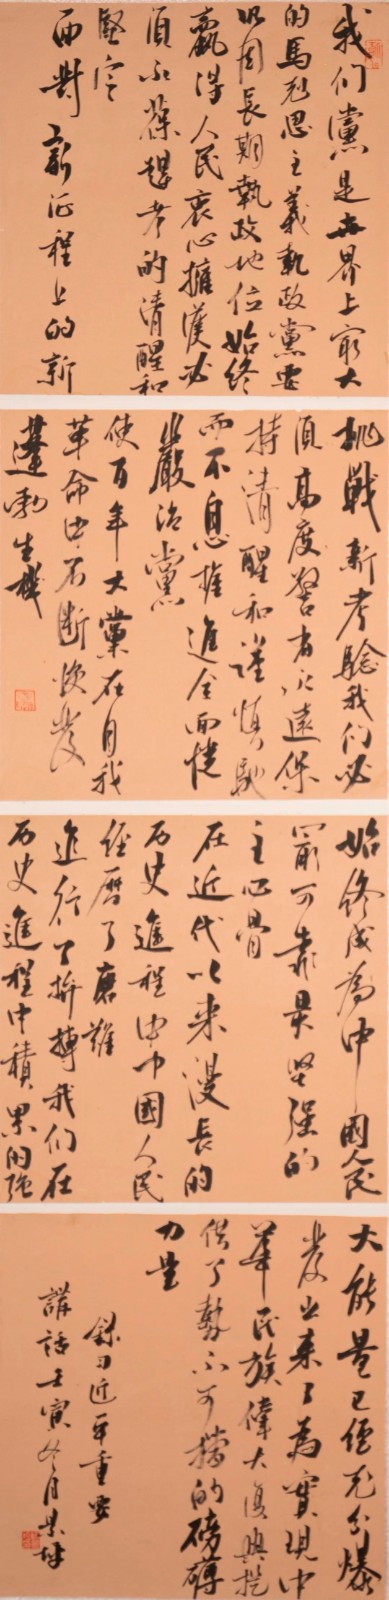 我们黨是世界上最大
的馬克思主義執政黨要
巩固長期執政地位始终
贏得人民衷心擁護必
須永葆趕考的清醒和
堅定
面對新征程上的新
挑戰新考驗我们必
須高度警省永遠保
持清醒和謹慎馳
而不息推進全面從
嚴治黨
使百年大黨在自我
革命中不断焕發
蓬勃生機
始終成為中國人民
最可靠最坚强的
主心骨
在近代以来漫長的
历史進程中中國人民
经曆了磨難
進行了拚搏我们在
历史進程中積累的强
大能量已经充分爆
發出来了為實現中
華民族偉大復興提
供了勢不可擋的磅礴
力量
錄习近平重要
講話壬寅冬月